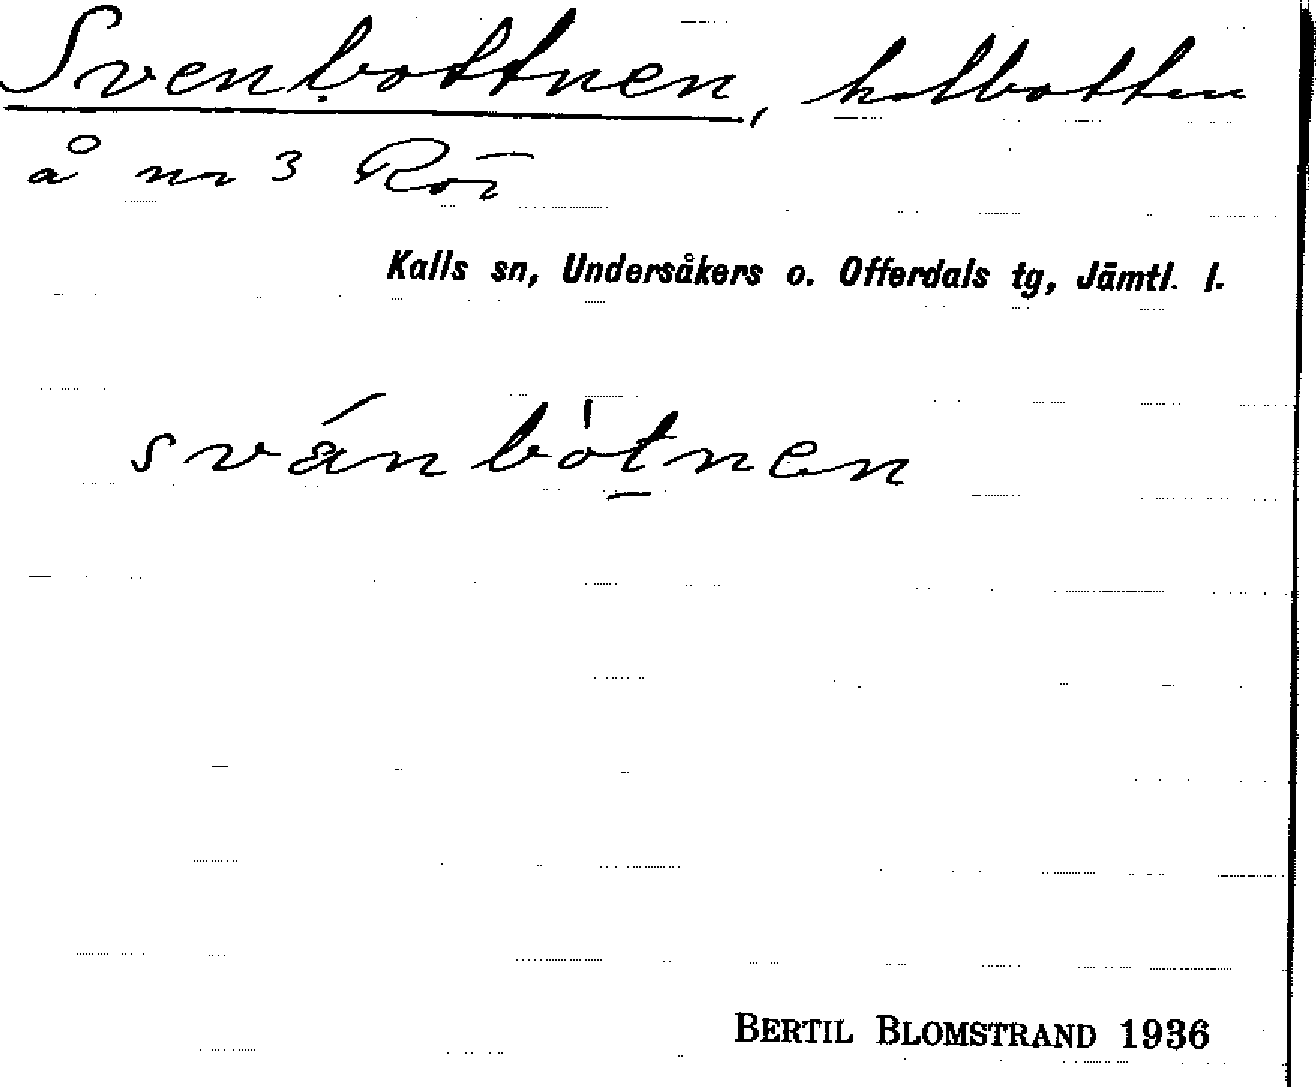 Svenbottnen, kolbotten
å nr 3 Röi
Kalls sn, Undersåkers o. Offerdals tg, Jämtl. l.
svánbòtnen
BERTIL BLOMSTRAND 1936